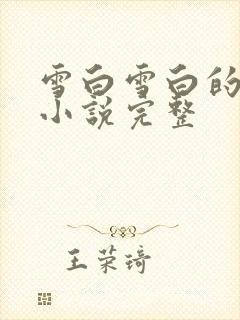 雪白雪白的
小説完整
王荣琦